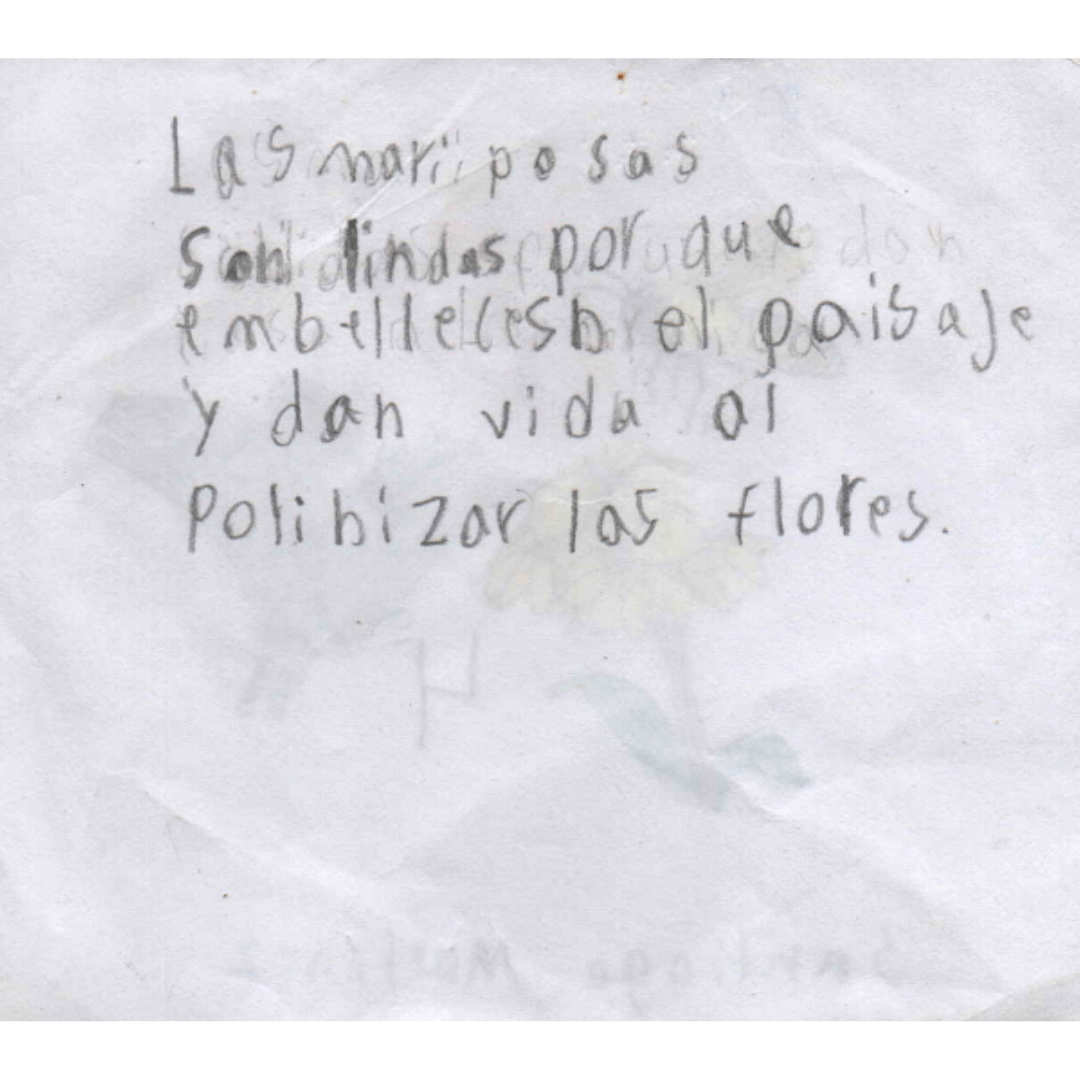 Las mariposas
son lindas porque
embellecesn el paisaje
y dan vida al
Polinizar las flores.